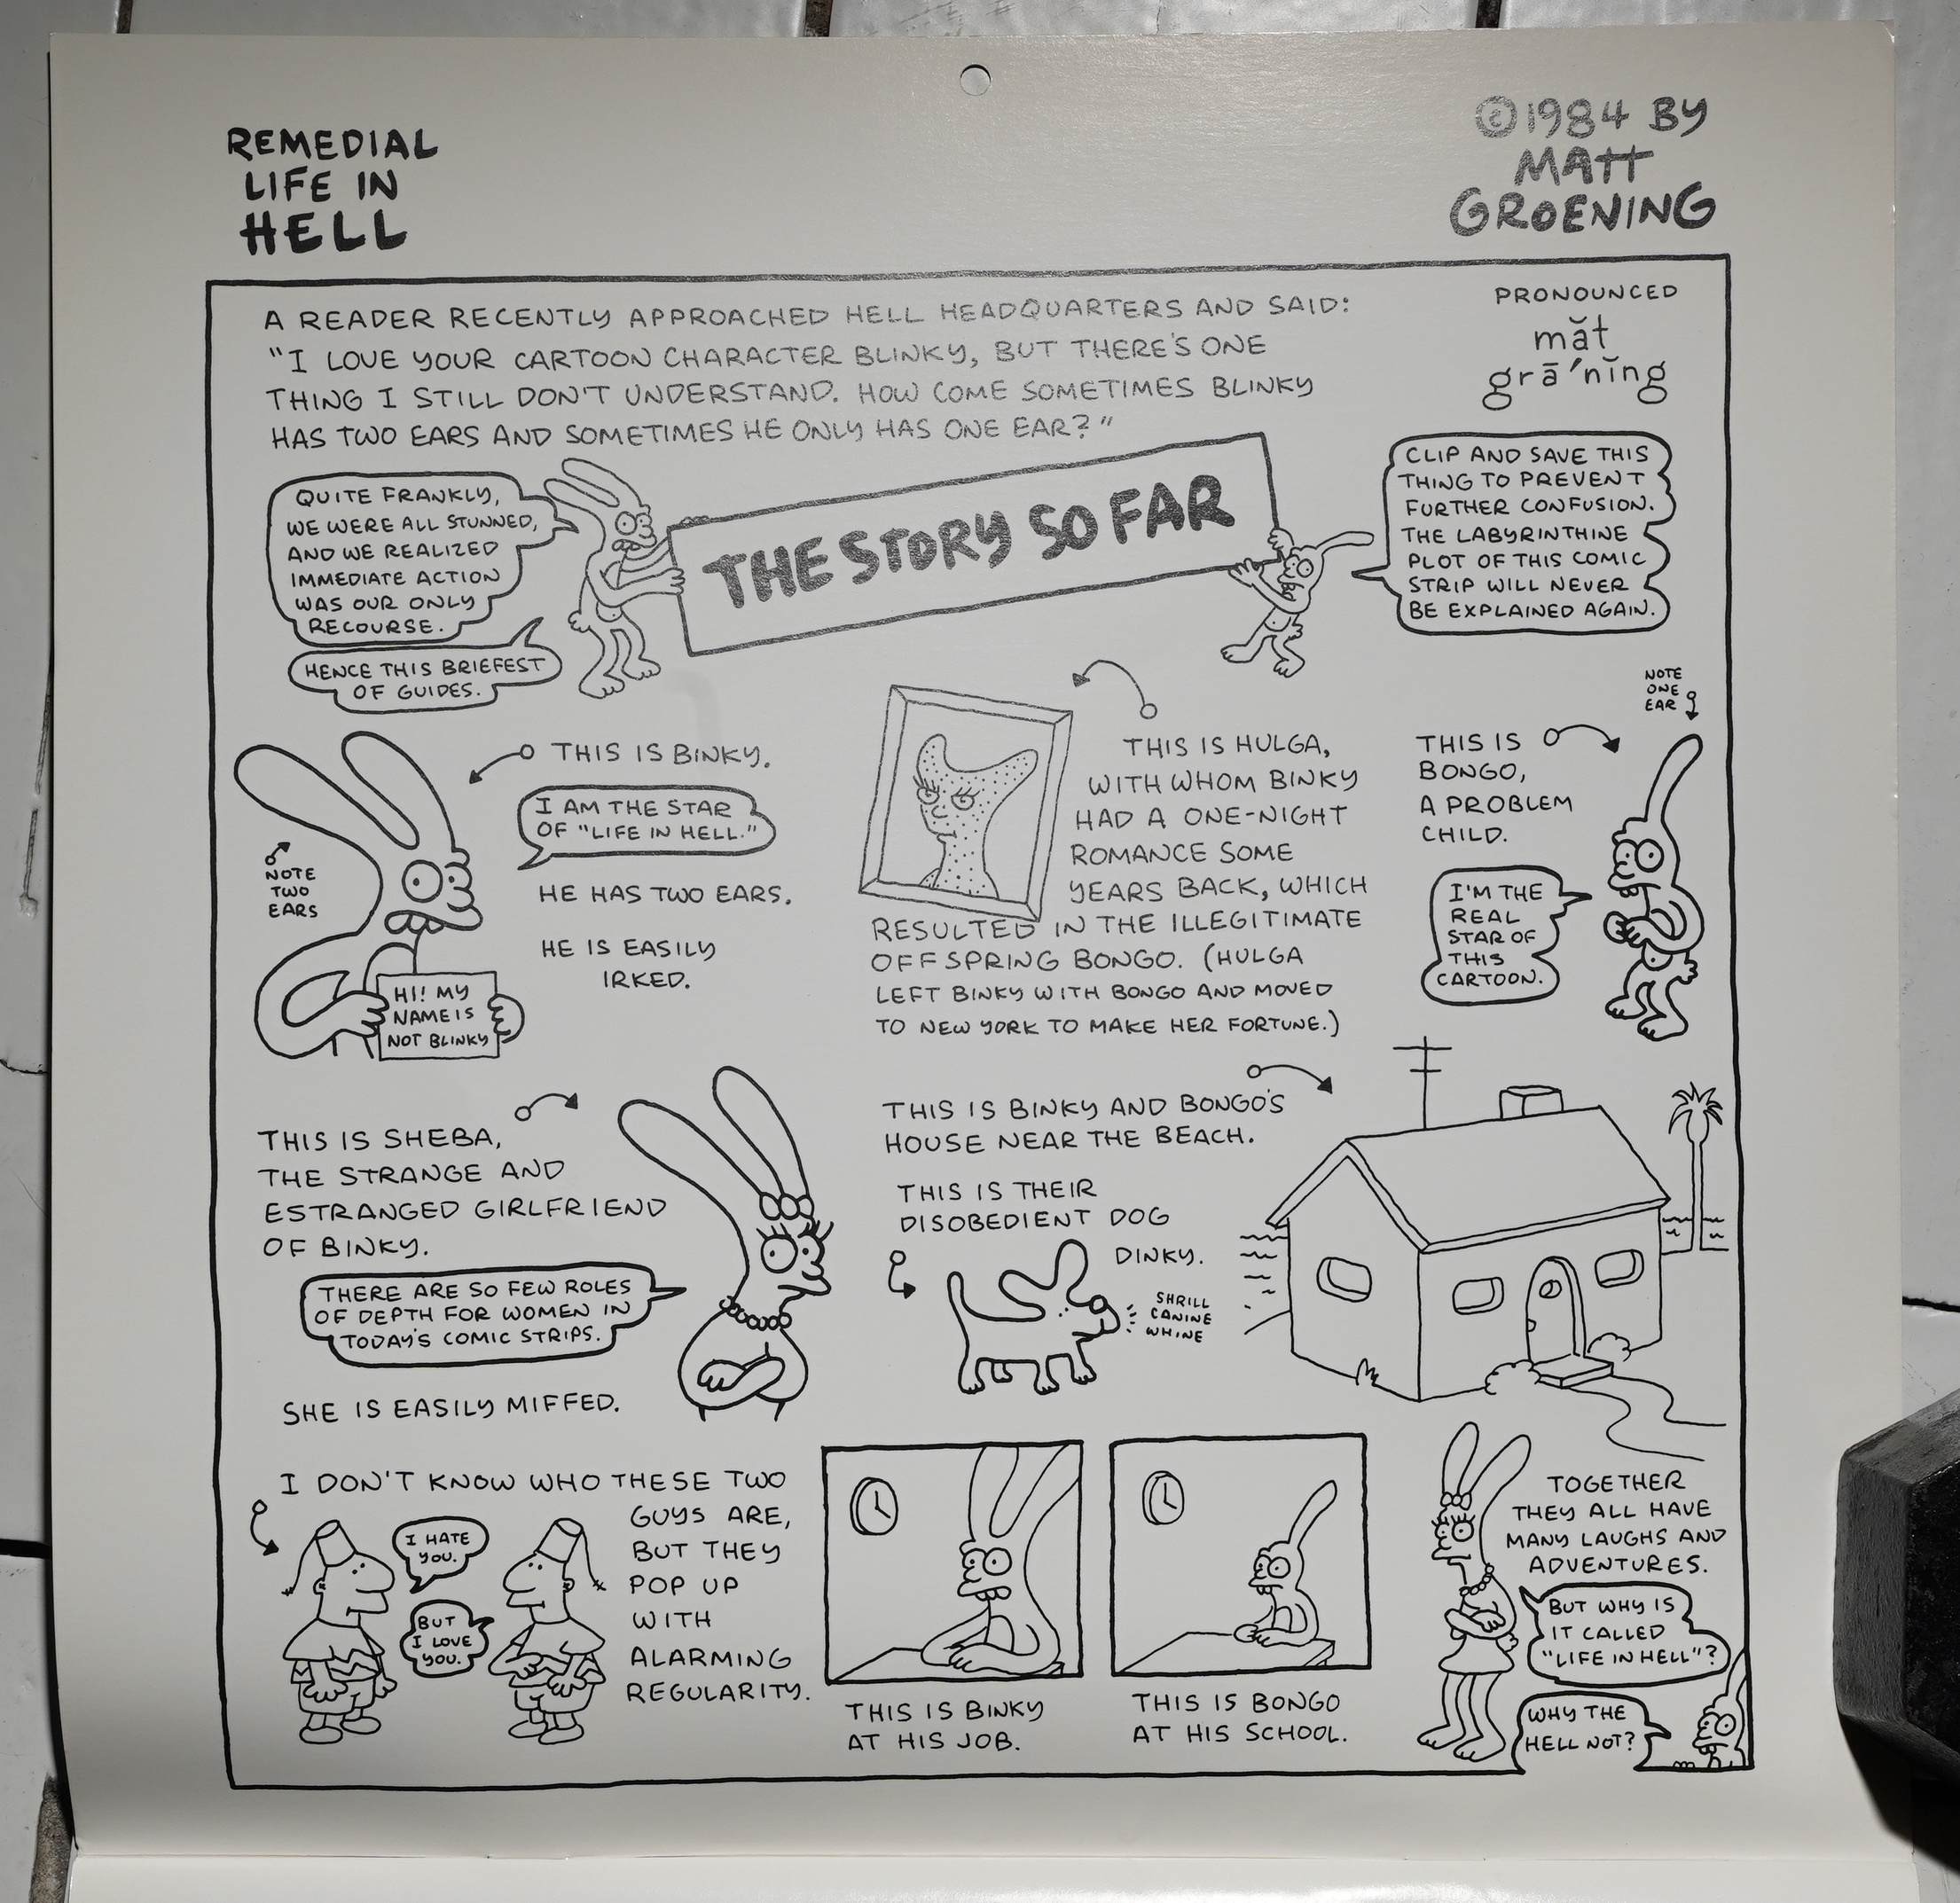 REMEDIAL
LIFE IN
HELL
©1984 BY
MATT
GROENING
A READER RECENTLY APPROACHED HELL HEADQUARTERS AND SAID:
"I LOVE YOUR CARTOON CHARACTER BLINKY, BUT THERE'S ONE
THING I STILL DON'T UNDERSTAND. HOW COME SOMETIMES BLINKY
HAS TWO EARS AND SOMETIMES HE ONLY HAS ONE EAR?"
PRONOUNCED
măt
grā'nĭng
QUITE FRANKLY,
WE WERE ALL STUNNED,
AND WE REALIZED
IMMEDIATE ACTION
WAS OUR ONLY
RECOURSE.
HENCE THIS BRIEFEST
OF GUIDES.
THE STORY SO FAR
CLIP AND SAVE THIS
THING TO PREVENT
FURTHER CONFUSION.
THE LABYRINTHINE
PLOT OF THIS COMIC
STRIP WILL NEVER
BE EXPLAINED AGAIN.
THIS IS BINKY.
I AM THE STAR
OF "LIFE IN HELL."
NOTE
TWO
EARS
HE HAS TWO EARS.
HE IS EASILY
IRKED.
HI! MY
NAME IS
NOT BLINKY
THIS IS HULGA,
WITH WHOM BINKY
HAD A ONE-NIGHT
ROMANCE SOME
YEARS BACK, WHICH
RESULTED IN THE ILLEGITIMATE
OFFSPRING BONGO. (HULGA
LEFT BINKY WITH BONGO AND MOVED
TO NEW YORK TO MAKE HER FORTUNE.)
NOTE
ONE
EAR
THIS IS
BONGO,
A PROBLEM
CHILD.
I'M THE
REAL
STAR OF
THIS
CARTOON.
THIS IS SHEBA,
THE STRANGE AND
ESTRANGED GIRLFRIEND
OF BINKY.
THERE ARE SO FEW ROLES
OF DEPTH FOR WOMEN IN
TODAY'S COMIC STRIPS.
SHE IS EASILY MIFFED.
THIS IS BINKY AND BONGO'S
HOUSE NEAR THE BEACH.
THIS IS THEIR
DISOBEDIENT DOG
DINKY.
SHRILL
CANINE
WHINE
I DON'T KNOW WHO THESE TWO
GUYS ARE,
BUT THEY
POP UP
WITH
ALARMING
REGULARITY.
I HATE
YOU.
BUT
I LOVE
YOU.
THIS IS BINKY
AT HIS JOB.
THIS IS BONGO
AT HIS SCHOOL.
TOGETHER
THEY ALL HAVE
MANY LAUGHS AND
ADVENTURES.
BUT WHY IS
IT CALLED
"LIFE IN HELL"?
WHY THE
HELL NOT?